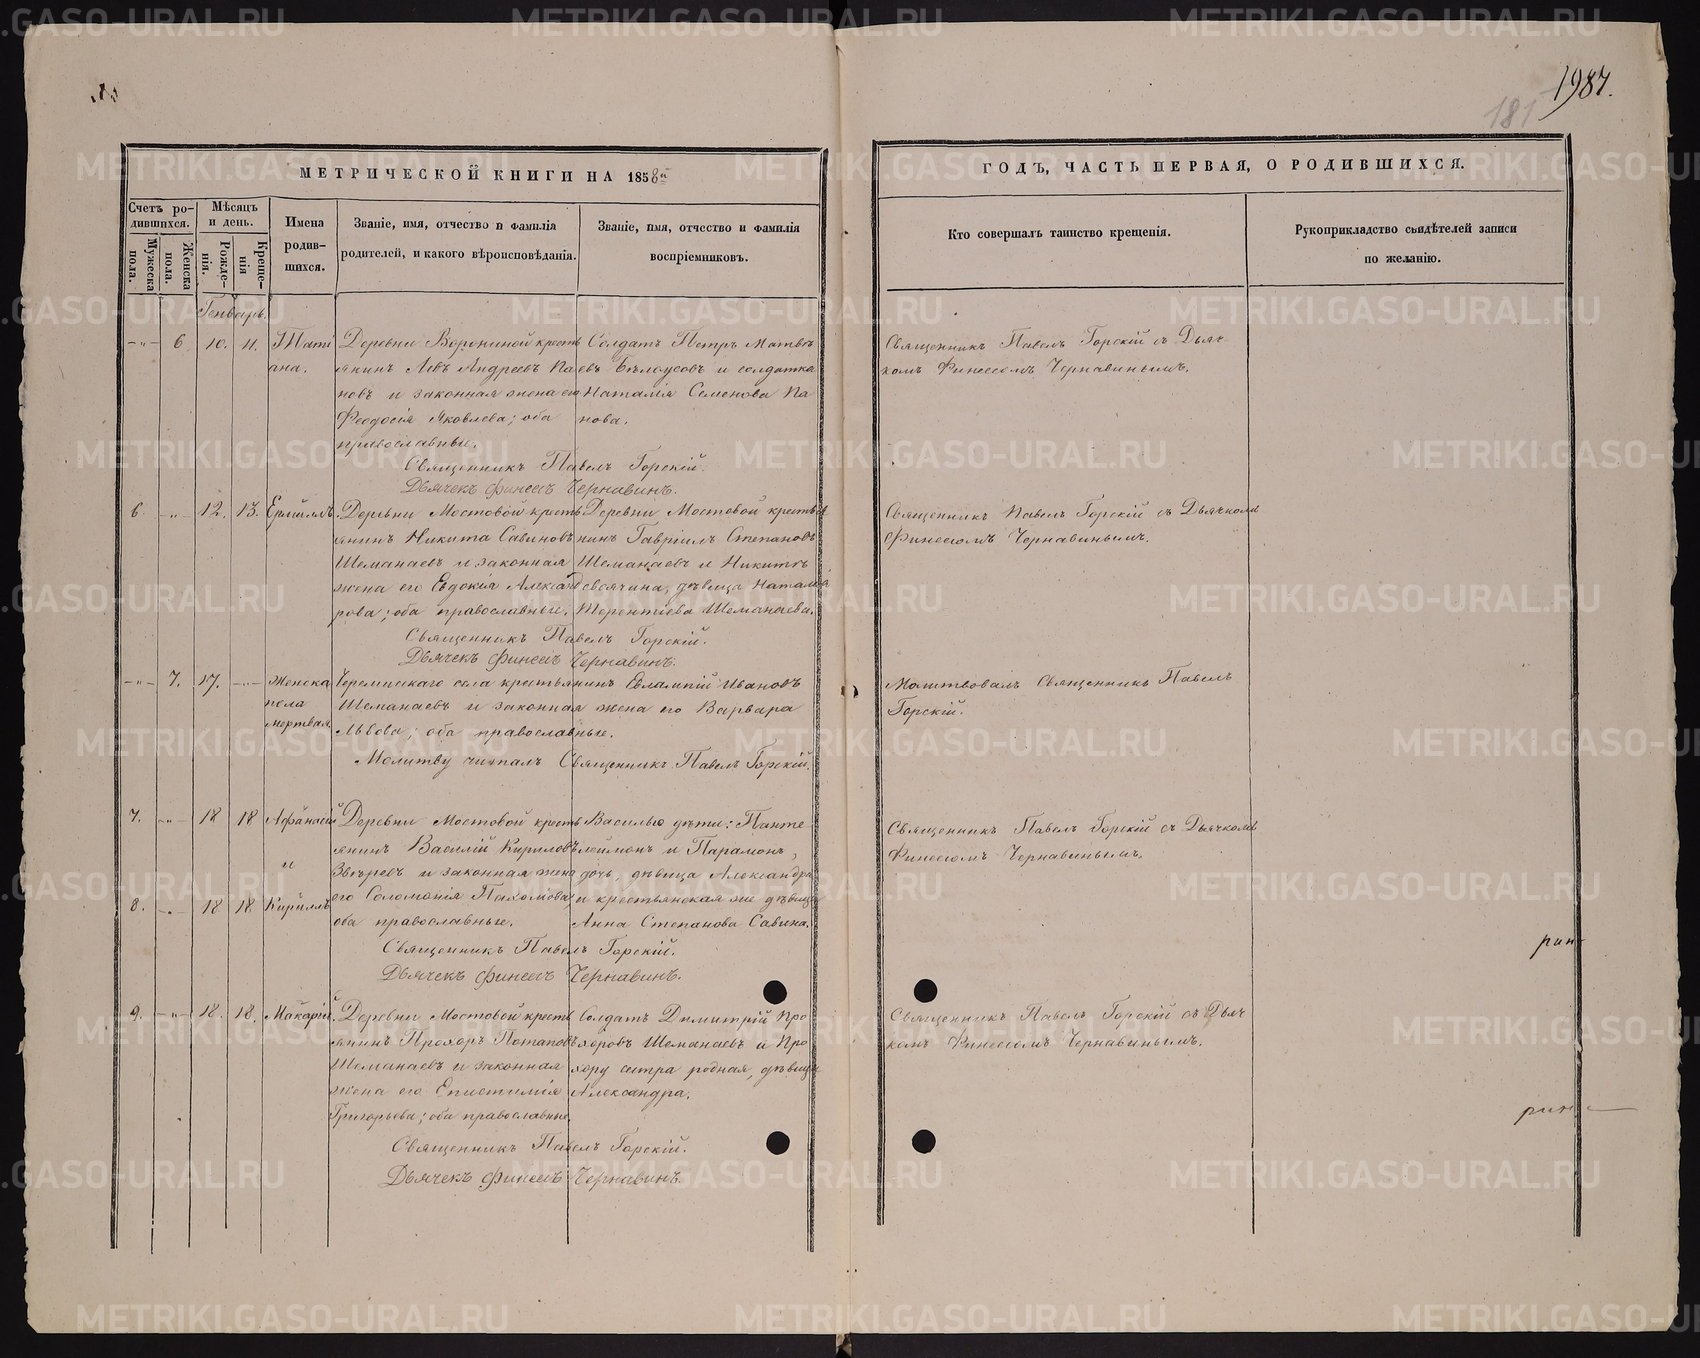 1987.
181
МЕТРИЧЕСКОЙ КНИГИ НА 1858й
ГОДЪ, ЧАСТЬ ПЕРВАЯ, О РОДИВШИХСЯ.
Счетъ ро-
дившихся.
Мужеска
пола.
Женска
пола.
Мѣсяцъ
и день.
Рожде-
нія.
Креще-
нія
Имена
родив-
шихся.
Званіе, имя, отчество и фамилія
родителей, и какого вѣроисповѣданія.
Званіе, имя, отчество и фамилія
воспріемниковъ.
Кто совершалъ таинство крещенія.
Рукоприкладство свидѣтелей записи
по желанію.
Генварь.
6. 10. 11. Тати
ана.
Деревни Ворониной кресть
янинъ Левъ Андреевъ Па
новъ и законная жена его
Феодосія Яковлева; оба
православные.
Солдатъ Петръ Матвѣ
евъ Бѣлоусовъ и солдатка
Наталія Семенова Па
нова.
Священникъ Павелъ Горскій съ Дьяч
комъ Финеесомъ Чернавинымъ.
Священникъ Павелъ Горскій.
Дьячекъ Финеесъ Чернавинъ.
6. 12. 13. Ермиллъ.
Деревни Мостовой кресть
янинъ Никита Савиновъ
Шеманаевъ и законная
жена его Евдокія Александ
рова; оба православные.
Деревни Мостовой крестья
нинъ Гавріилъ Степановъ
Шеманаевъ и Никитѣ
своячина, дѣвица Наталья
Терентіева Шеманаева.
Священникъ Павелъ Горскій съ Дьячкомъ
Финеесомъ Чернавинымъ.
Священникъ Павелъ Горскій.
Дьячекъ Финеесъ Чернавинъ.
7. 17. Женска
пола
мертвая
Черемисскаго села крестьянинъ Евлампій Ивановъ
Шеманаевъ и законная жена его Варвара
Львова; оба православные.
Молитвовалъ Священникъ Павелъ
Горскій.
Молитву читалъ Священникъ Павелъ Горскій.
7. 18 18 Афанасій
и
8. 18 18 Кириллъ
Деревни Мостовой кресть
янинъ Василій Кириловъ
Звѣревъ и законная жена
его Соломонія Пахомова
оба православные.
Василью дѣти: Панте
леймонъ и Парамонъ,
дочь, дѣвица Александра
и крестьянская же дѣвица
Анна Степанова Савина.
Священникъ Павелъ Горскій съ Дьячкомъ
Финеесомъ Чернавинымъ.
Священникъ Павелъ Горскій.
Дьячекъ Финеесъ Чернавинъ.
9. 18. 18. Макарій.
Деревни Мостовой кресть
янинъ Прохоръ Потаповъ
Шеманаевъ и законная
жена его Епистимія
Григорьева; оба православные.
Солдатъ Димитрій Про
хоровъ Шеманаевъ и Про
хору сестра родная, дѣвица
Александра.
Священникъ Павелъ Горскій съ Дьяч
комъ Финеесомъ Чернавинымъ.
Священникъ Павелъ Горскій.
Дьячекъ Финеесъ Чернавинъ.
METRIKI.GASO-URAL.RU